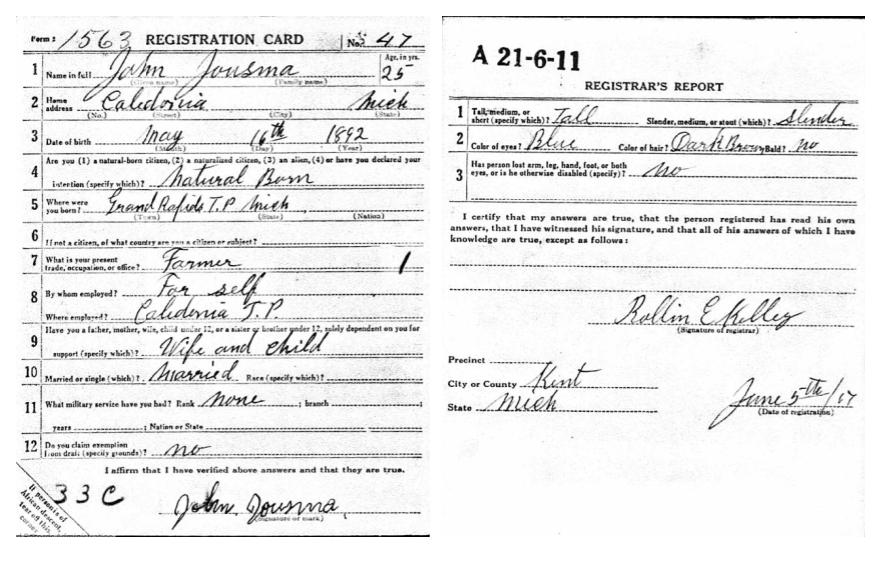 Form 1 1563 REGISTRATION CARD No. 47
1 Name in full John Jousma Age, in yrs. 25
(Given name) (Family name)
2 Home address Caledoinia Mich
(No.) (Street) (City) (State)
3 Date of birth May 16th 1892
(Month) (Day) (Year)
4 Are you (1) a natural-born citizen, (2) a naturalized citizen, (3) an alien, (4) or have you declared your
intention (specify which)? Natural Born
5 Where were you born? Grand Rapids T.P Mich
(Town) (State) (Nation)
6 If not a citizen, of what country are you a citizen or subject?
7 What is your present trade, occupation, or office? Farmer 1
8 By whom employed? For self
Where employed? Caledonia T.P
9 Have you a father, mother, wife, child under 12, or a sister or brother under 12, solely dependent on you for
support (specify which)? Wife and child
10 Married or single (which)? Married Race (specify which)?
11 What military service have you had? Rank none ; branch ;
years ; Nation or State
12 Do you claim exemption from draft (specify grounds)? no
I affirm that I have verified above answers and that they are true.
33 C
John Jousma
(Signature or mark)
If person is of
African descent,
tear off this
corner
A 21-6-11
REGISTRAR'S REPORT
1 Tall, medium, or short (specify which)? Tall Slender, medium, or stout (which)? Slender
2 Color of eyes? Blue Color of hair? Dark Brown Bald? no
3 Has person lost arm, leg, hand, foot, or both
eyes, or is he otherwise disabled (specify)? no
I certify that my answers are true, that the person registered has read his own
answers, that I have witnessed his signature, and that all of his answers of which I have
knowledge are true, except as follows:
Rollin E Kelley
(Signature of registrar)
Precinct
City or County Kent
State Mich
June 5th/17
(Date of registration)